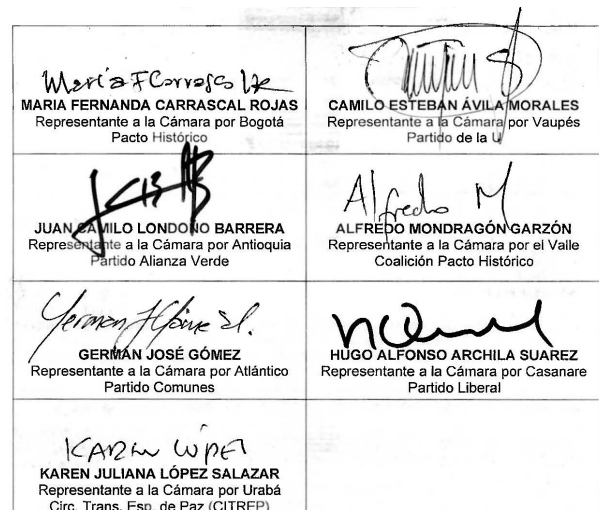 Maria F Carrasco
MARIA FERNANDA CARRASCAL ROJAS
Representante a la Cámara por Bogotá
Pacto Histórico
CAMILO ESTEBAN ÁVILA MORALES
Representante a la Cámara por Vaupés
Partido de la U
JUAN CAMILO LONDOÑO BARRERA
Representante a la Cámara por Antioquia
Partido Alianza Verde
Alfredo M
ALFREDO MONDRAGÓN GARZÓN
Representante a la Cámara por el Valle
Coalición Pacto Histórico
German J Gómez
GERMÁN JOSÉ GÓMEZ
Representante a la Cámara por Atlántico
Partido Comunes
HUGO ALFONSO ARCHILA SUAREZ
Representante a la Cámara por Casanare
Partido Liberal
KAREN LÓPEZ
KAREN JULIANA LÓPEZ SALAZAR
Representante a la Cámara por Urabá
Circ. Trans. Esp. de Paz (CITREP)